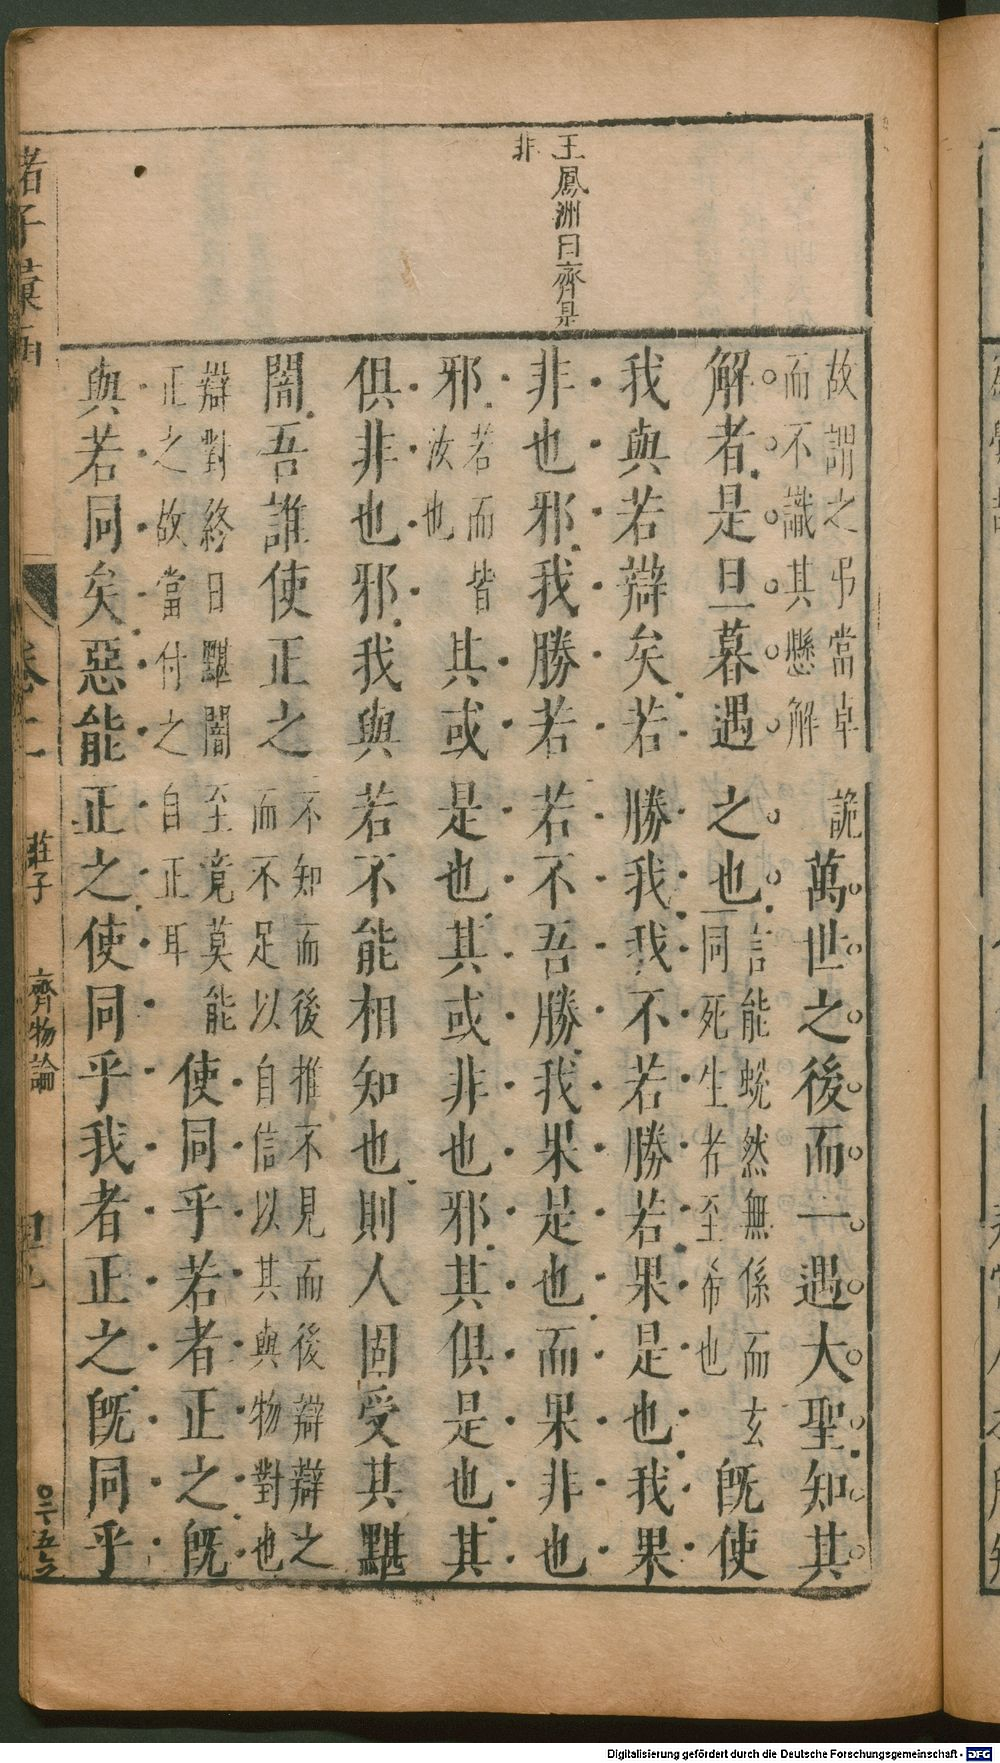 王鳳洲曰齊是
非
故謂之弔當卓詭
而不識其懸解
萬世之後而一遇大聖知其
解者是旦暮遇之也
言能蛻然無係而玄
同死生者至希也
旣使
我與若辯矣若勝我我不若勝若果是也我果
非也邪我勝若若不吾勝我果是也而果非也
邪
若而皆
汝也
其或是也其或非也邪其俱是也其
俱非也邪我與若不能相知也則人固受其黮
闇吾誰使正之
不知而後推不見而後辯辯之
而不足以自信以其與物對也
辯對終日黮闇至竟莫能
正之故當付之自正耳
使同乎若者正之旣
與若同矣惡能正之使同乎我者正之旣同乎
莊子
齊物論
Digitalisierung gefördert durch die Deutsche Forschungsgemeinschaft - DFG